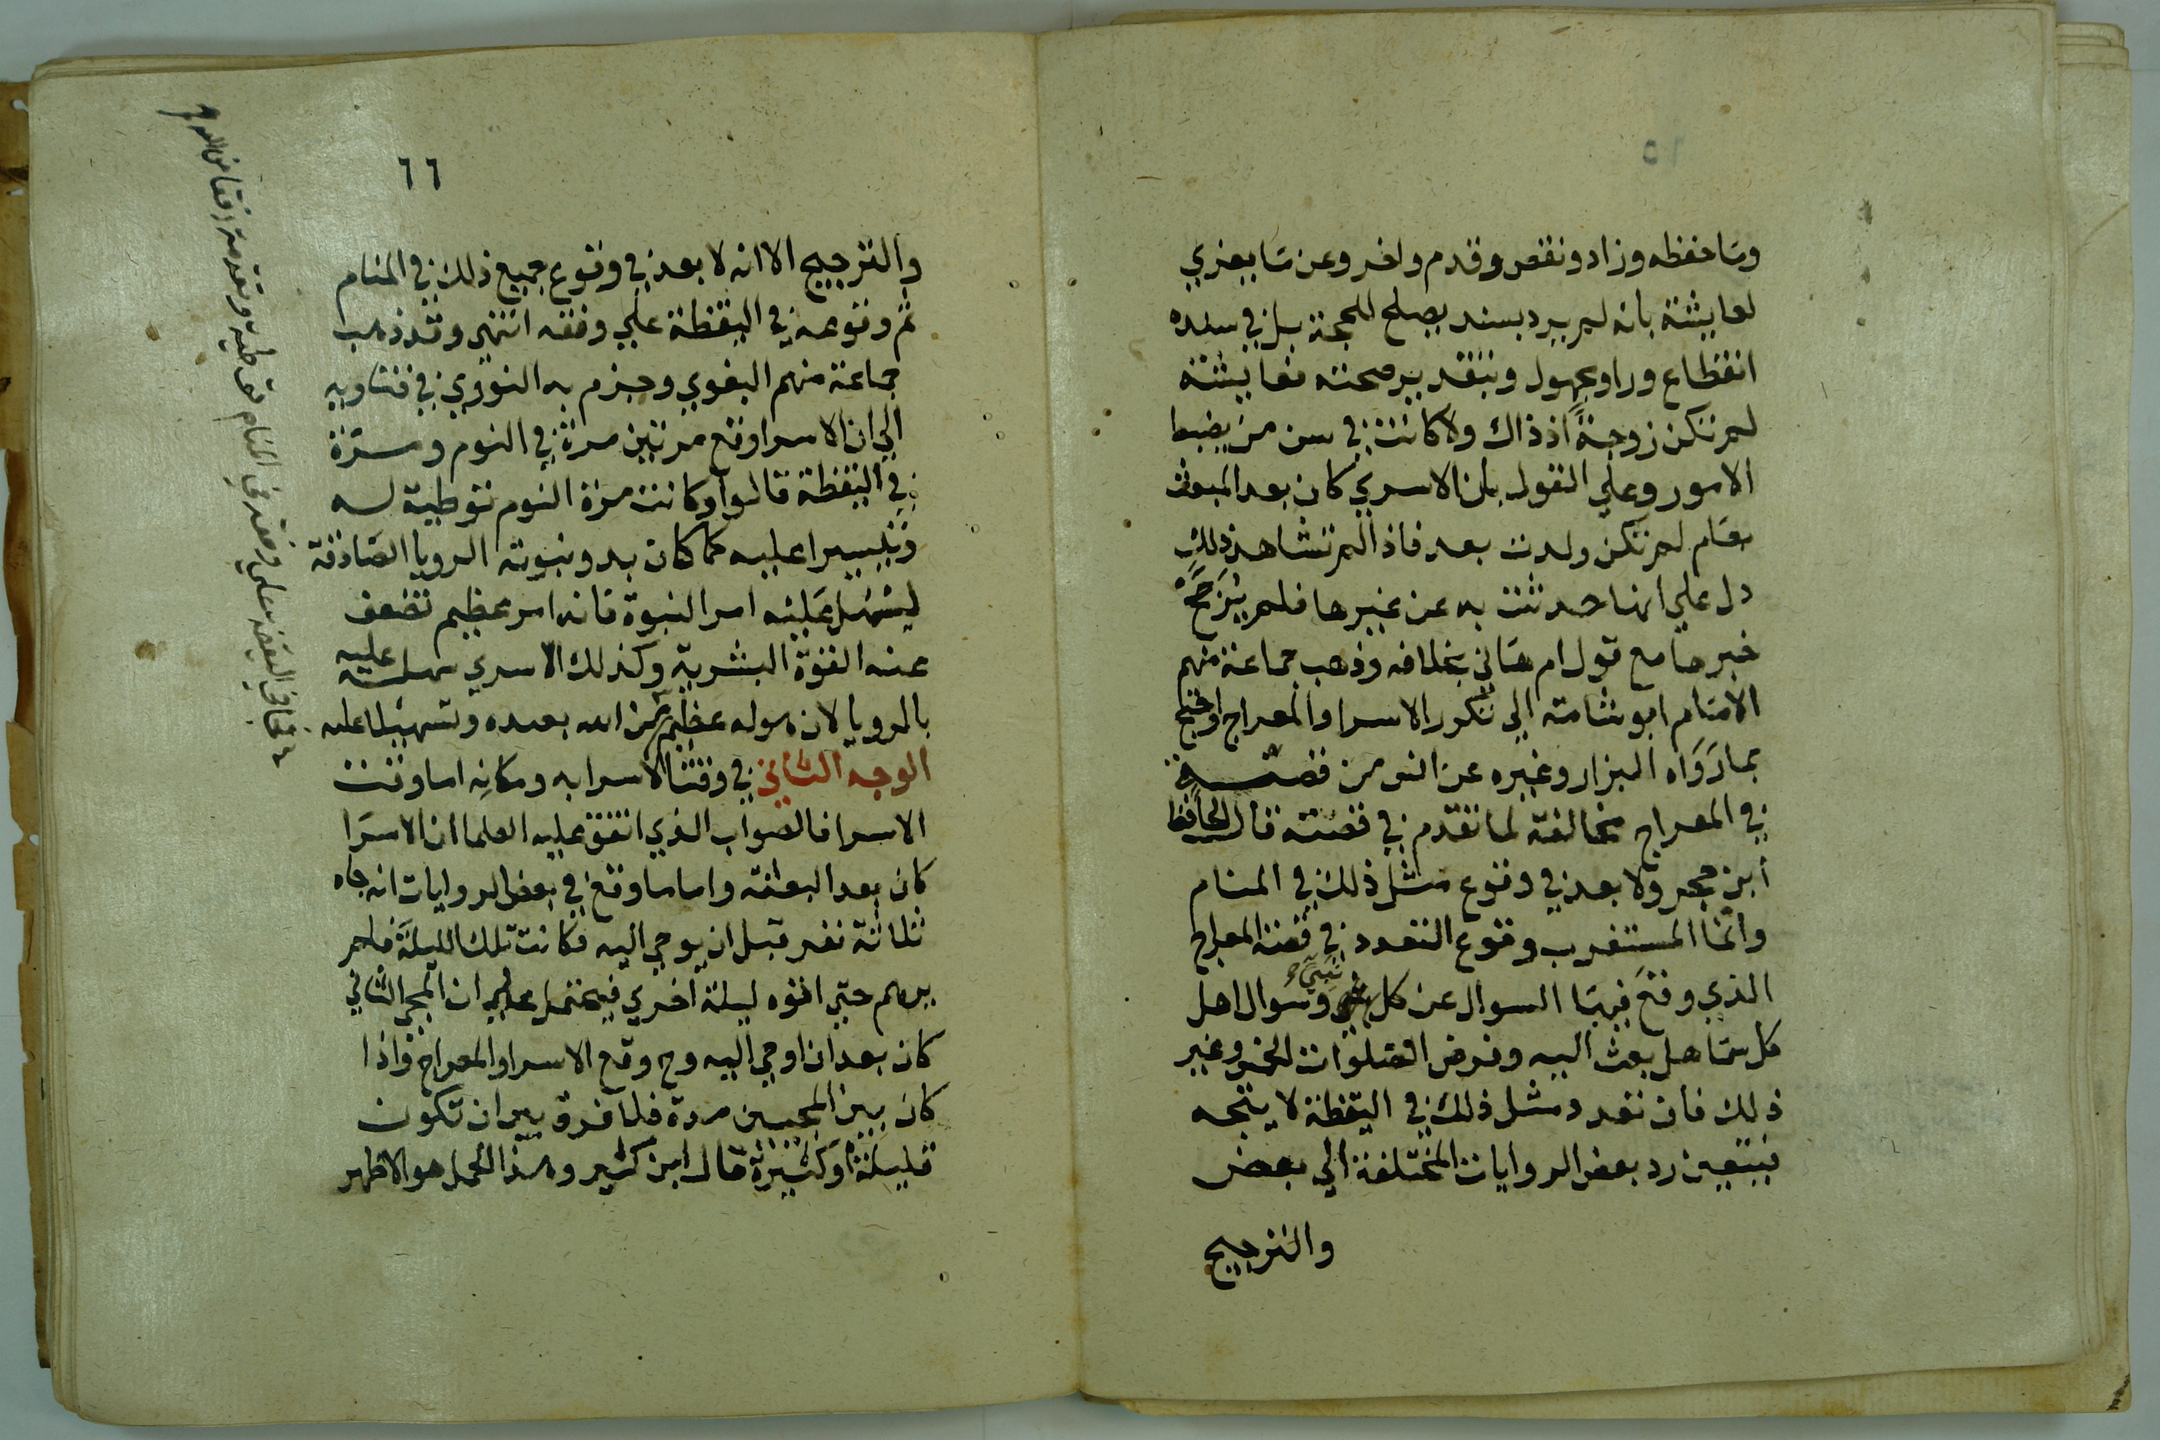 وما حفظه وزاد ونقص وقدم واخر وعن ما يعزي
لعايشة بانه لم يرد بسند يصلح للحجة بل في سنده
انقطاع وراو مجهول وبتقدير صحته فعايشة
لم تكن زوجة اذ ذاك ولا كانت في سن من يضبط
الامور وعلي القول بان الاسري كان بعد المبعث
بعام لم تكن ولدت بعد فاذا لم تشاهد ذلك
دل علي انها حدثت به عن غيرها فلم يُرَجَّحْ
خبرها مع قول ام هاني بخلافه وذهب جماعة منهم
الامام ابو شامة الي تكرر الاسرا والمعراج واحتج
بما رَوَاه البزار وغيره عن انس من قصته
في المعراج مخالفة لما تقدم في قصته قال الحافظ
أبن حجر ولا بعد في وقوع مثل ذلك في المنام
وانما المستغرب وقوع التعدد في قصة المعراج
الذي وقع فيها السوال عن كل نَبِيّ وسوال اهل
كل سما هل بعث اليه وفرض الصلوات الخمس وغير
ذلك فان تعدد مثل ذلك في اليقظة لا يتجه
فيتعين رد بعض الروايات المختلفة الي بعض
والترجيح
٦٦
والترجيح الا انه لا بعد في وقوع جميع ذلك في المنام
ثم وقوعه في اليقظة علي وفقه انتهي وقد ذهب
جماعة منهم البغوي وجزم به النووي في فتاويه
الي ان الاسرا وقع مرتين مرة في النوم ومرة
في اليقظة قالوا وكانت مرة النوم توطية له
وتيسيرا عليه كما كان بدو نبوته الرويا الصادقة
ليسْهُل عَليْه امر النبوة فانه امر عظيم تضعف
عنه القوّة البشرية وكذلك الاسري سهله عليه
بالرويا لان هوله عظيم من الله بعبده وتسهيلا عليه
الوجه الثاني في وقت الاسرا به ومكانه اما وقت
الاسرا فالصواب الذي اتفق عليه العلما ان الاسرَا
كان بعد البعثة واما ما وقع في بعض الروايات انه جاه
ثلاثة نفر قبل ان يوحي اليه فكانت تلك الليلة فلم
يرهم حتي اتوه ليلة اخري فيحتمل علي ان المجي الثاني
كان بعد ان اوحي اليه وح وقع الاسرا والمعراج واذا
كان بين المجيين مدة فلا فرق بين ان تكون
قليلة أو كثيرة قال ابن كثير وهذا المحمل هو الاظهر